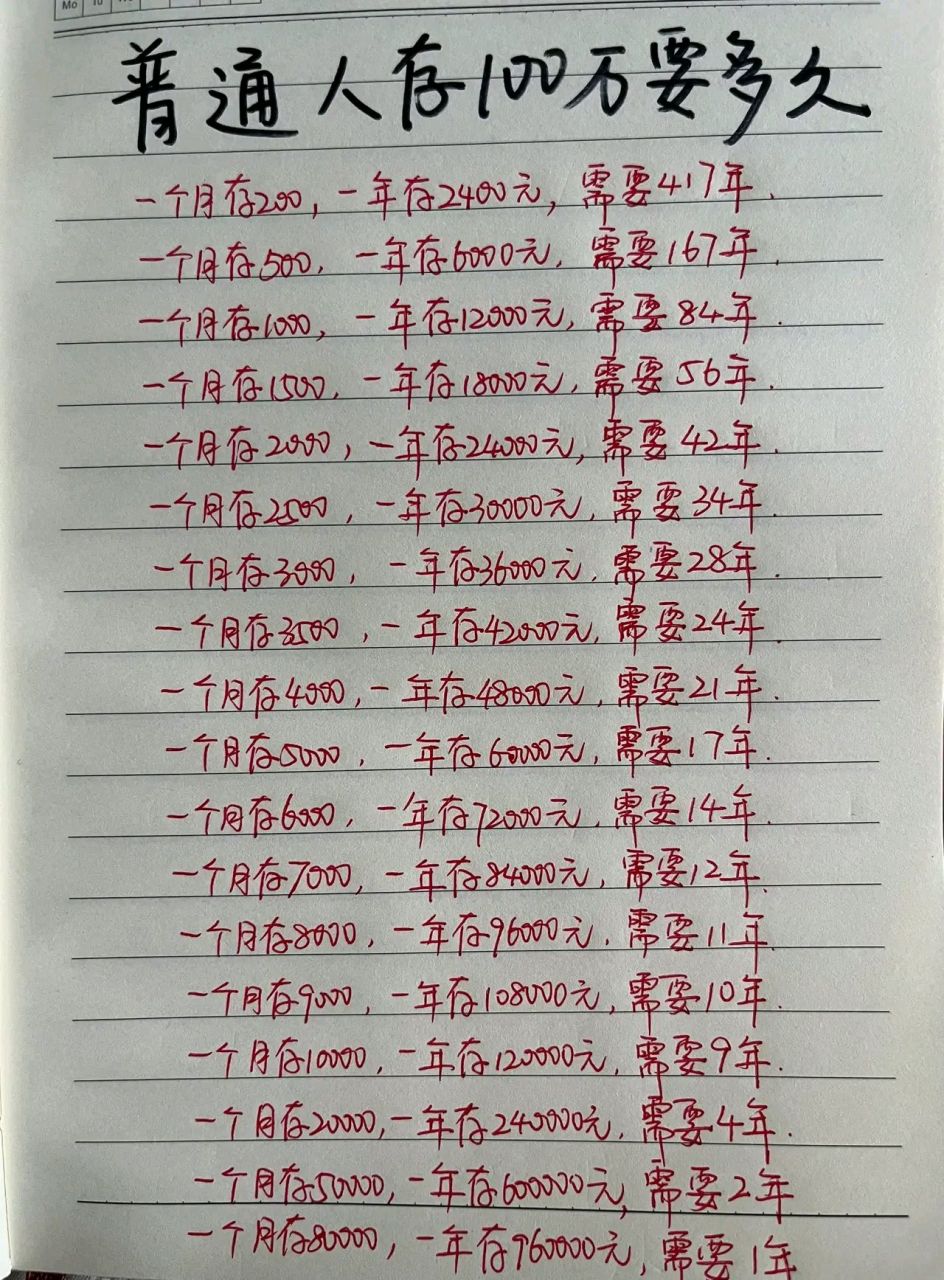 Mo
普通人存100万要多久
一个月存200，一年存2400元，需要417年．
一个月存500，一年存6000元，需要167年．
一个月存1000，一年存12000元，需要84年．
一个月存1500，一年存18000元，需要56年．
一个月存2000，一年存24000元，需要42年．
一个月存2500，一年存30000元，需要34年．
一个月存3000，一年存36000元，需要28年．
一个月存3500，一年存42000元，需要24年．
一个月存4000，一年存48000元，需要21年．
一个月存5000，一年存60000元，需要17年．
一个月存6000，一年存72000元，需要14年．
一个月存7000，一年存84000元，需要12年．
一个月存8000，一年存96000元，需要11年．
一个月存9000，一年存108000元，需要10年．
一个月存10000，一年存120000元，需要9年．
一个月存20000，一年存240000元，需要4年．
一个月存50000，一年存600000元，需要2年
一个月存80000，一年存960000元，需要1年